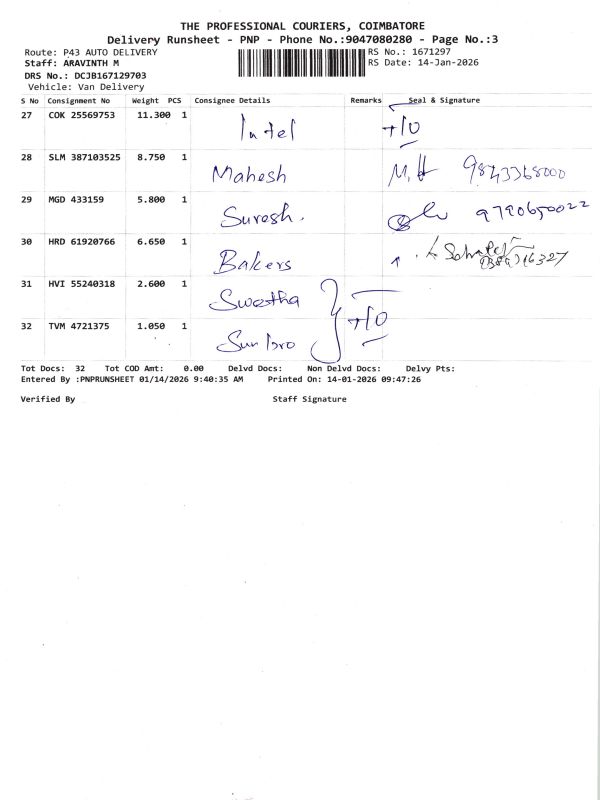 THE PROFESSIONAL COURIERS, COIMBATORE
Delivery Runsheet - PNP - Phone No.:9047080280 - Page No.:3
Route: P43 AUTO DELIVERY
RS No.: 1671297
Staff: ARAVINTH M
RS Date: 14-Jan-2026
DRS No.: DCJB167129703
Vehicle: Van Delivery
S No Consignment No Weight PCS Consignee Details Remarks Seal & Signature
27 COK 25569753 11.300 1 Intel T/O
28 SLM 387103525 8.750 1 Mahesh 9843368000
29 MGD 433159 5.800 1 Suresh. 9790650022
30 HRD 61920766 6.650 1 Bakers
31 HVI 55240318 2.600 1 Swetha T/O
32 TVM 4721375 1.050 1 Sunbro
Tot Docs: 32 Tot COD Amt: 0.00 Delvd Docs: Non Delvd Docs: Delvy Pts:
Entered By :PNPRUNSHEET 01/14/2026 9:40:35 AM Printed On: 14-01-2026 09:47:26
Verified By Staff Signature